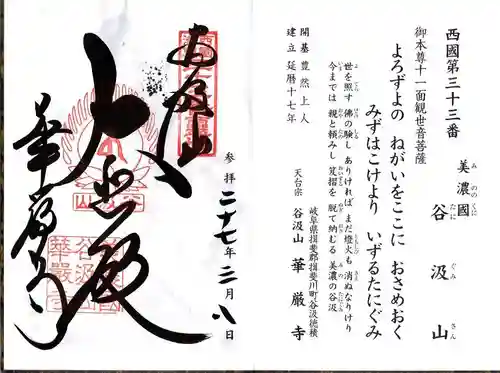 西國第三十三番
美濃國 谷汲山
みののくに たにぐみさん
御本尊十一面観世音菩薩
よろずよの ねがいをここに おさめおく
みずはこけより いずるたにぐみ
世を照す 佛の験し ありければ まだ燈火も 消ぬなりけり
今までは 親と頼みし 笈摺を 脱て納むる 美濃の谷汲
開基 豊然上人
建立 延暦十七年
岐阜県揖斐郡揖斐川町谷汲徳積
天台宗 谷汲山 華厳寺
谷汲山
参拝 二十七年 三月 八日
大悲殿
華厳寺